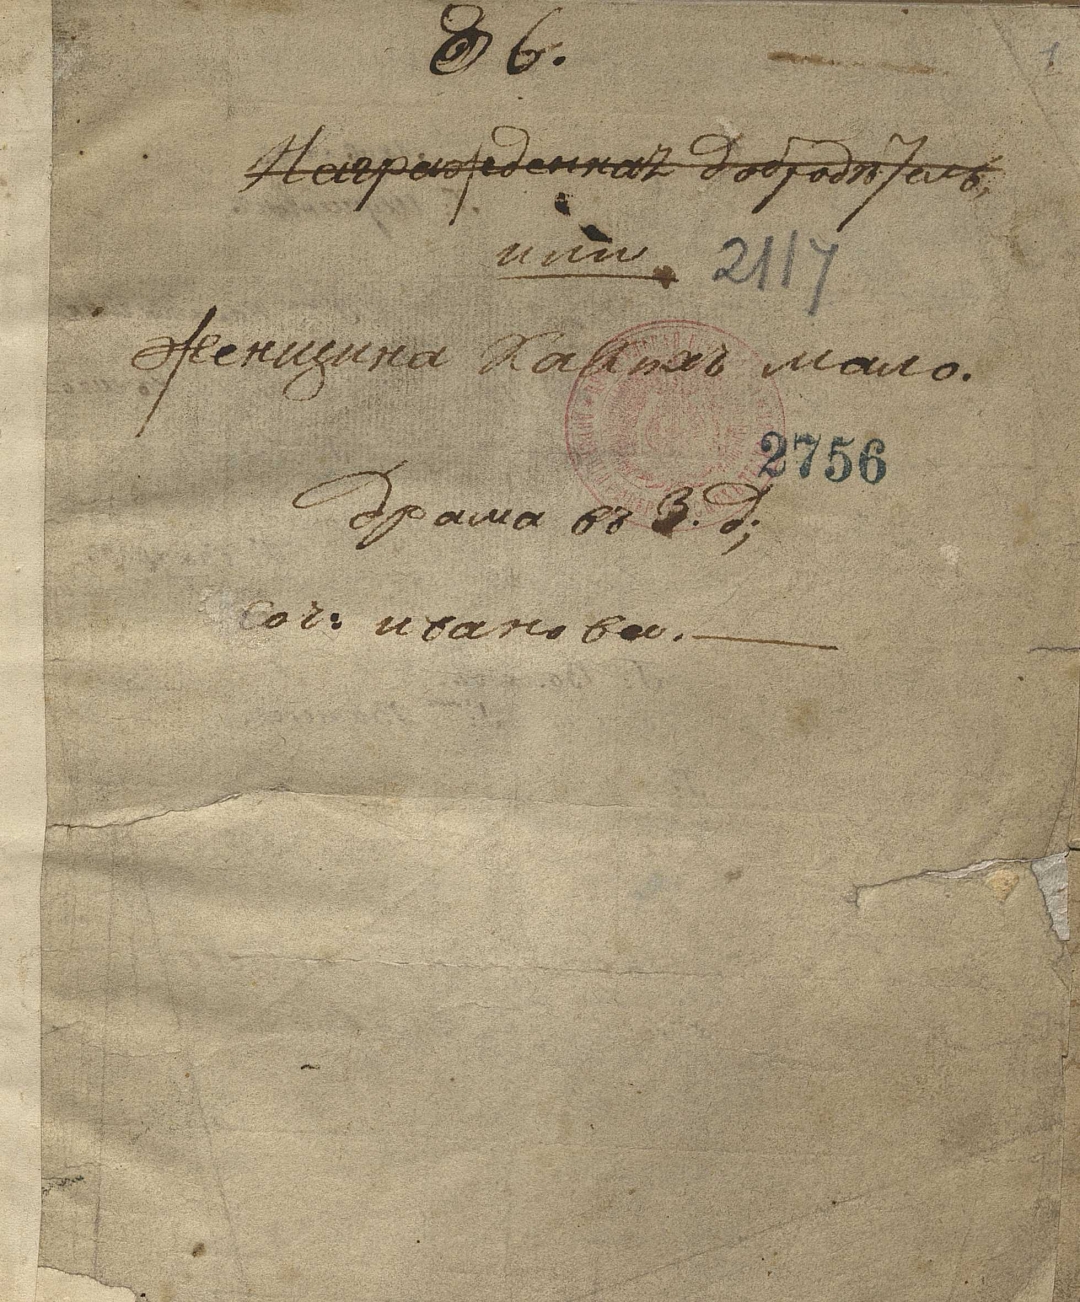 86.
1
Награжденная Добродѣтель,
или
2117
Женщина Какихъ мало.
2756
Драма въ 3. Д;
Соч: иванова.